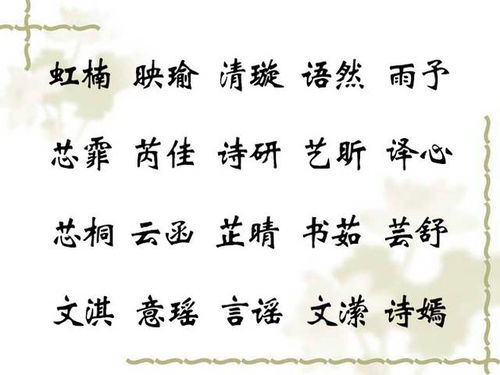 虹楠 映瑜 清璇 语然 雨予
芯霏 芮佳 诗研 艺昕 译心
芯桐 云函 芷晴 书茹 芸舒
文淇 意瑶 言谣 文潆 诗嫣